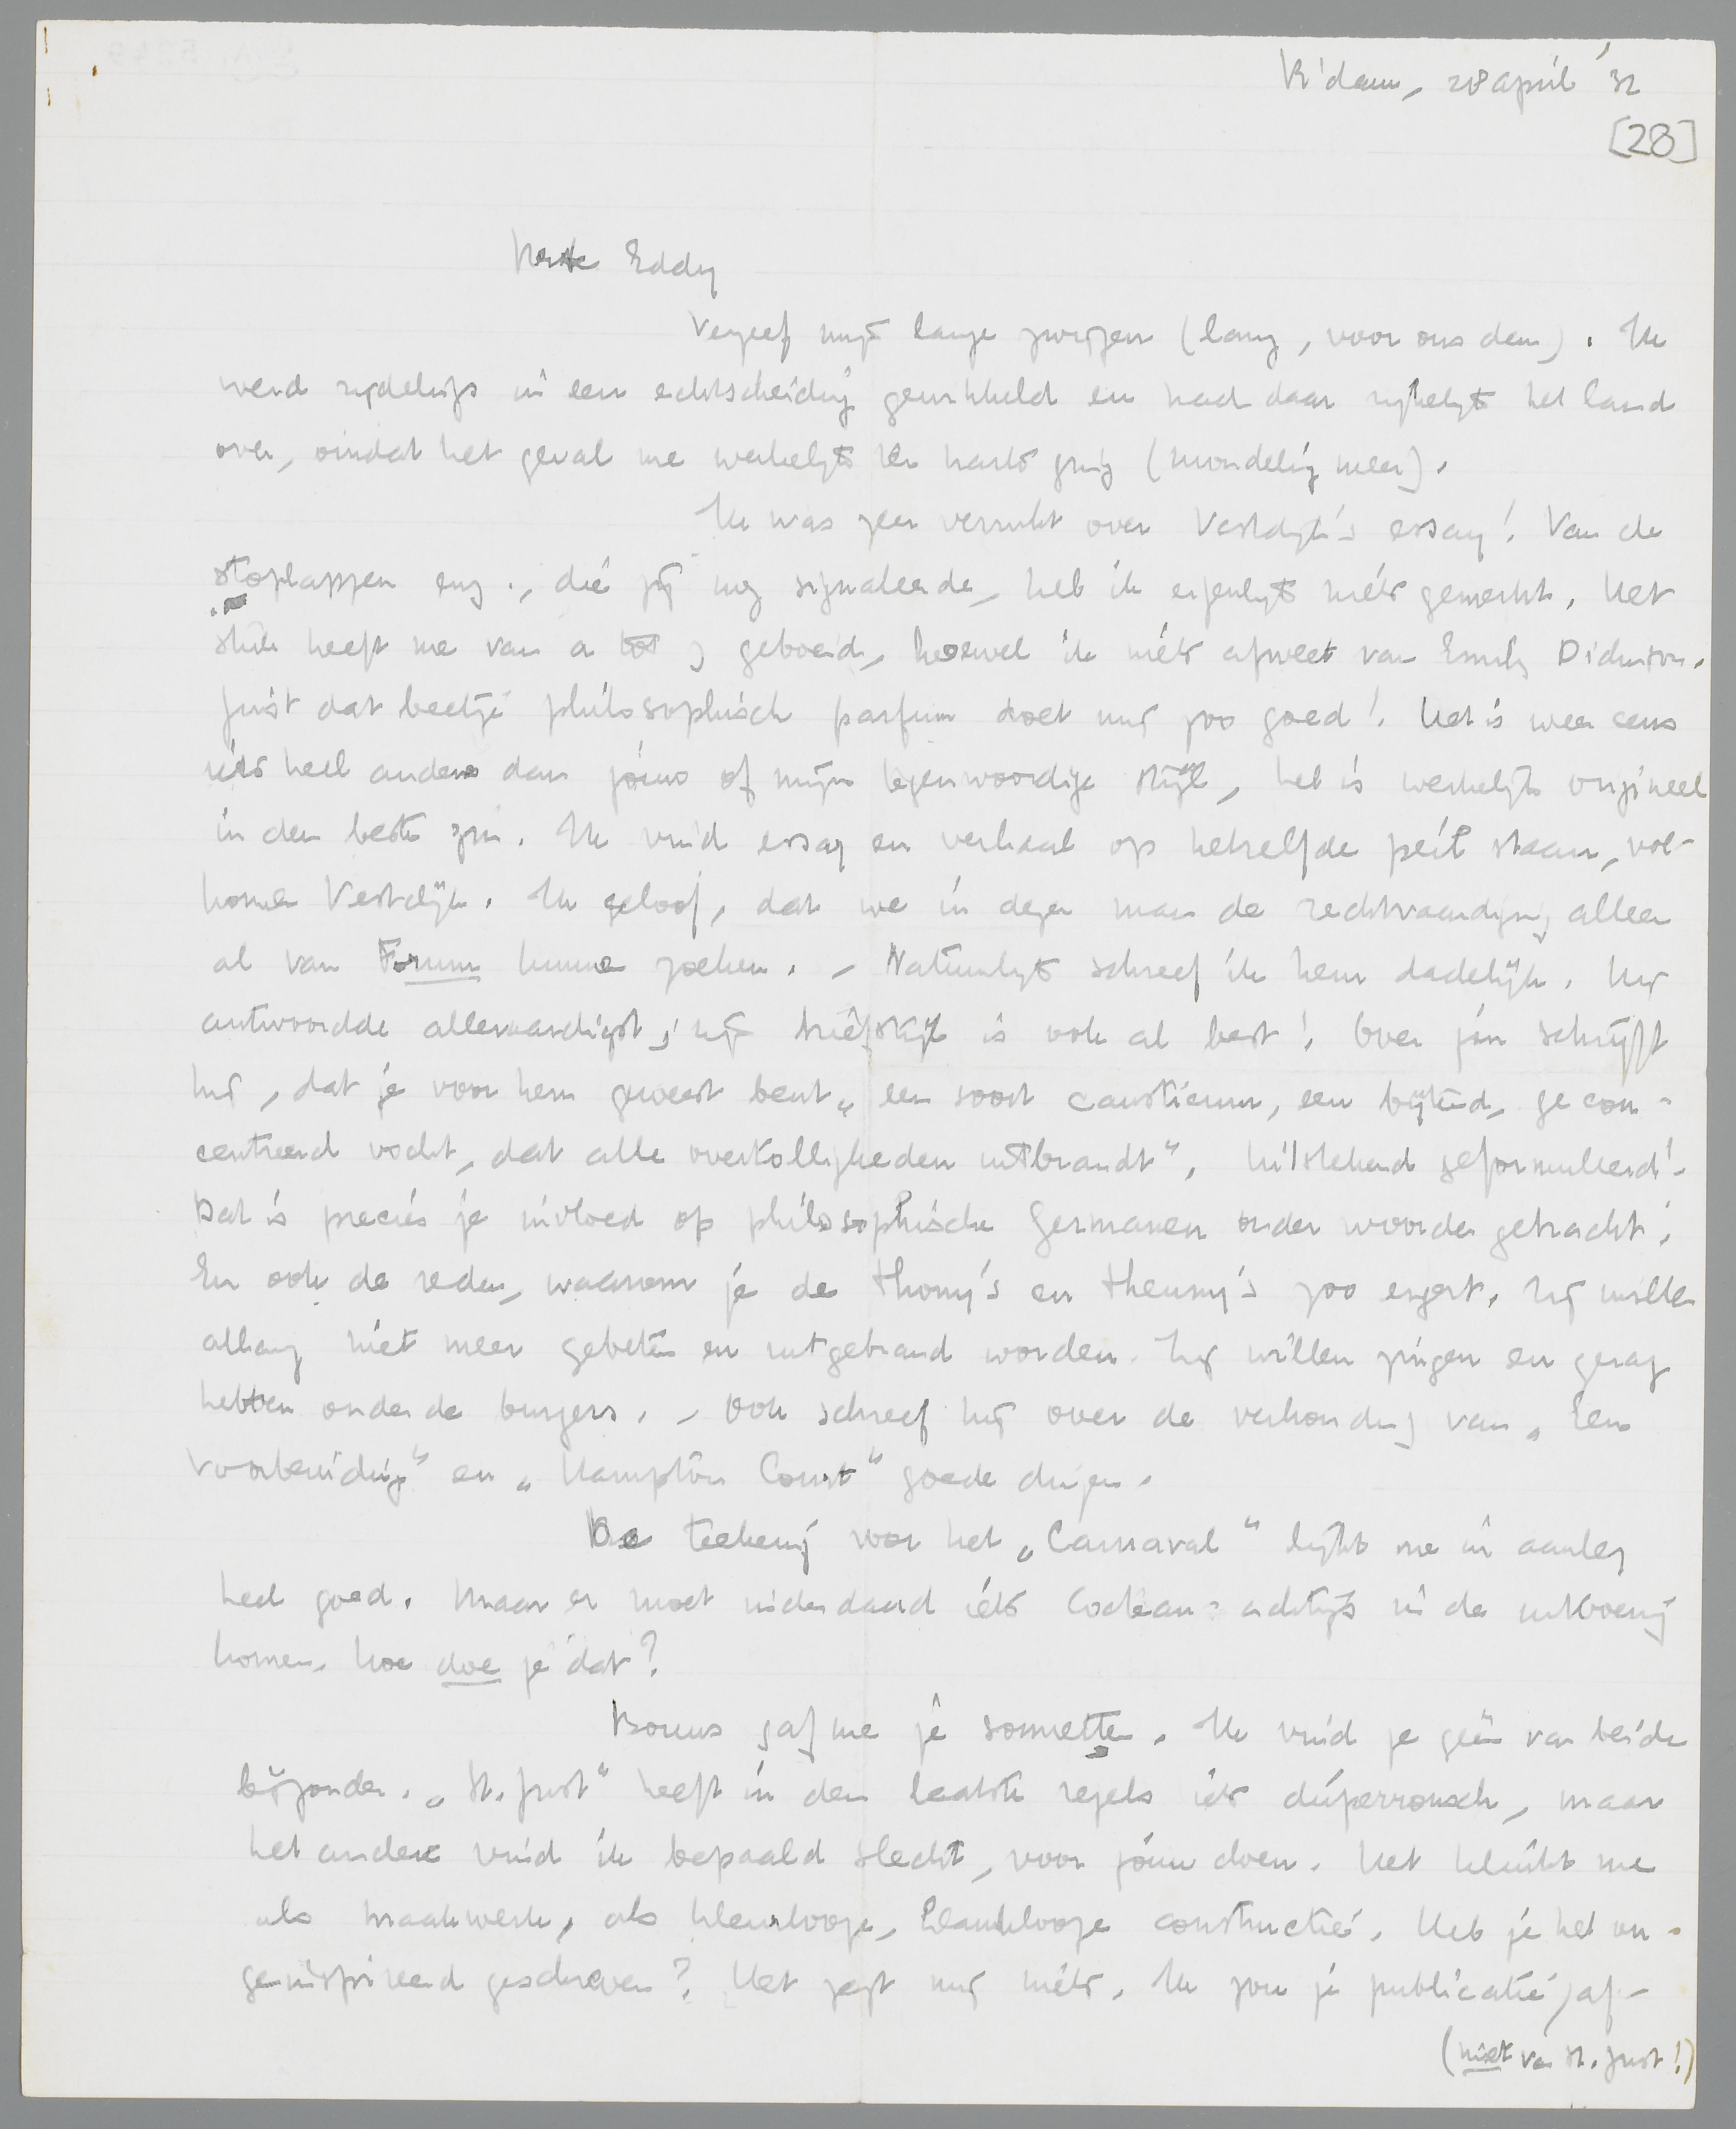 R'dam, 28 april '32
[28]
Beste Eddy
Vergeef mijn lange zwijgen (lang, voor ons dan). Ik
werd zijdelings in een echtscheiding gewikkeld en had daar rijkelijk het land
over, omdat het geval me werkelijk ter harte ging (mondeling meer).
Ik was zeer verrukt over Vestdijk's essay! Van de
stoplappen enz., die jij nog signaleerde, heb ik eigenlijk niets gemerkt. Het
stuk heeft me van a tot z geboeid, hoewel ik niets afweet van Emily Dickinson.
Juist dat beetje philosophisch parfum doet mij zoo goed! Het is weer eens
iets heel anders dan jouw of mijn tegenwoordige stijl, het is werkelijk origineel
in den besten zin. Ik vind essay en verhaal op hetzelfde peil staan, vol-
komen Vestdijk. Ik geloof, dat we in dezen man de rechtvaardiging alleen
al van Forum kunnen zoeken. - Natuurlijk schreef ik hem dadelijk. Hij
antwoordde alleraardigst; zijn briefstijl is ook al best! Over jou schrijft
hij, dat je voor hem geweest bent „een soort causticum, een bijtend, gecon-
centreerd vocht, dat alle overtolligheden uitbrandt". Uitstekend geformuleerd!
Dat is precies je invloed op philosophische Germanen onder woorden gebracht.
En ook de reden, waarom je de thony's en theuny's zoo ergert. Zij willen
allang niet meer gebeten en uitgebrand worden. Zij willen zingen en gezag
hebben onder de burgers. - Ook schreef hij over de verhouding van „Een
voorbereiding" en „Hampton Court" goede dingen.
De teekening voor het „Carnaval" lijkt me in aanleg
heel goed. Maar er moet inderdaad iets Cocteau-achtigs in de uitvoering
komen. Hoe doe je dat?
Bouws gaf me je sonnetten. Ik vind ze geen van beide
bijzonder. „St. Just" heeft in den laatsten regels iets duperronsch, maar
het andere vind ik bepaald slecht, voor jouw doen. Het klinkt me
als maakwerk, als kleurlooze, klanklooze constructie. Heb je het on-
geïnspireerd geschreven? Het zegt mij niets. Ik zou je publicatie, af-
(niet van St. Just!)